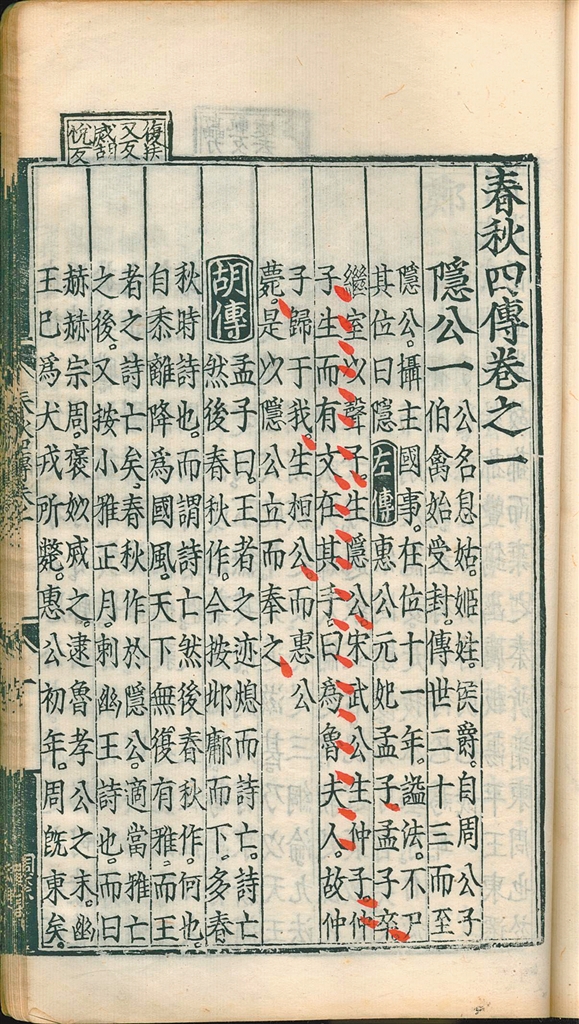 復扶
又反
烕胡
悅反
春秋四傳卷之一
隱公一
公名息姑。姬姓。侯爵。自周公子
伯禽始受封。傳世二十三而至
隱公。攝主國事。在位十一年。謚法。不尸
其位曰隱
左傳
惠公元妃孟子。孟子卒。
繼室以聲子。生隱公。宋武公生仲子。仲
子生而有文在其手。曰為魯夫人。故仲
子歸于我。生桓公。而惠公
薨。是以隱公立而奉之。
胡傳
孟子曰。王者之迹熄而詩亡。詩亡
然後春秋作。今按邶鄘而下。多春
秋時詩也。而謂詩亡然後春秋作。何也。
自黍離降為國風。天下無復有雅。而王
者之詩亡矣。春秋作於隱公。適當雅亡
之後。又按小雅正月。刺幽王詩也。而曰
赫赫宗周。褒姒烕之。逮魯孝公之末。幽
王已為犬戎所斃。惠公初年。周既東矣。